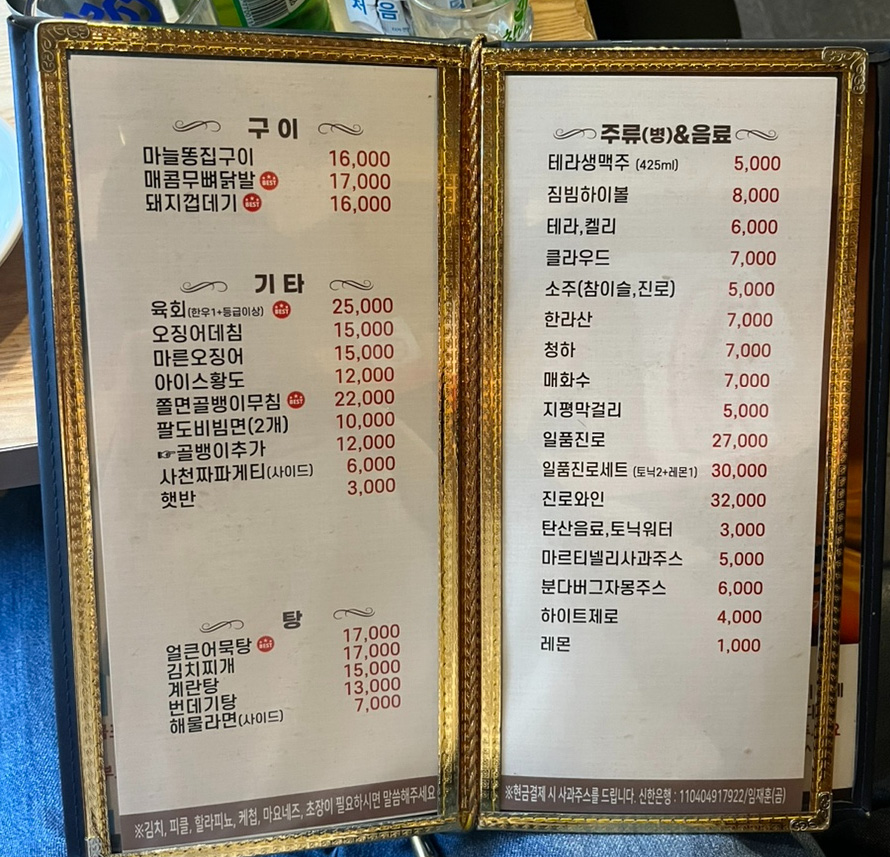 처음
구이
마늘똥집구이 16,000
매콤무뼈닭발 BEST 17,000
돼지껍데기 BEST 16,000
기타
육회(한우1+등급이상) BEST 25,000
오징어데침 15,000
마른오징어 15,000
아이스황도 12,000
쫄면골뱅이무침 BEST 22,000
팔도비빔면(2개) 10,000
☞골뱅이추가 12,000
사천짜파게티(사이드) 6,000
햇반 3,000
탕
얼큰어묵탕 BEST 17,000
김치찌개 17,000
계란탕 15,000
번데기탕 13,000
해물라면(사이드) 7,000
※김치, 피클, 할라피뇨, 케첩, 마요네즈, 초장이 필요하시면 말씀해주세요
주류(병)&음료
테라생맥주 (425ml) 5,000
짐빔하이볼 8,000
테라,켈리 6,000
클라우드 7,000
소주(참이슬,진로) 5,000
한라산 7,000
청하 7,000
매화수 7,000
지평막걸리 5,000
일품진로 27,000
일품진로세트 (토닉2+레몬1) 30,000
진로와인 32,000
탄산음료,토닉워터 3,000
마르티넬리사과주스 5,000
분다버그자몽주스 6,000
하이트제로 4,000
레몬 1,000
※현금결제 시 사과주스를 드립니다. 신한은행 : 110404917922/임재훈(곰)